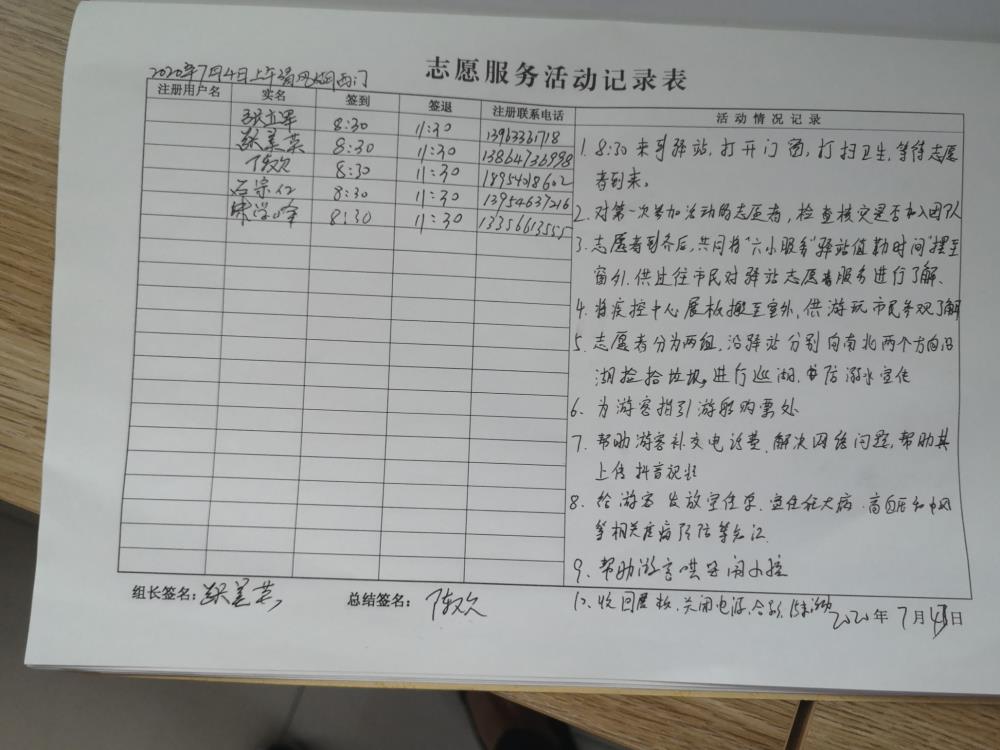 志愿服务活动记录表
2020年7月4日上午 西门
注册用户名 实名 签到 签退 注册联系电话 活动情况记录
8:30 11:30 13963361718
8:30 11:30 13864736998
8:30 11:30 1895418602
石宗仁 8:30 11:30 13954637216
8:30 11:30 13356613555
1. 8:30来到驿站,打开门窗,打扫卫生,等待志愿
者到来。
2. 对第一次参加活动的志愿者,检查核实是否加入团队
3. 志愿者到齐后,共同将"六小服务"驿站值勤时间"摆至
窗外,供过往市民对驿站志愿者服务进行了解、
4. 将疾控中心展板搬至室外,供游玩市民参观了解
5. 志愿者分为两组,沿驿站分别向南北两个方向沿
湖捡拾垃圾,进行巡湖, 防溺水宣传
6、为游客指引游船购票处
7、帮助游客补交电话费、解决网络问题,帮助其
上传抖音视频
8、给游客发放宣传单,宣传 大病、高血压和中风
等相关疾病预防等知识
9、帮助游客哄 闹小孩
10、收回展板、关闭电源、合影、结束活动
组长签名: 总结签名: 2020年7月4日